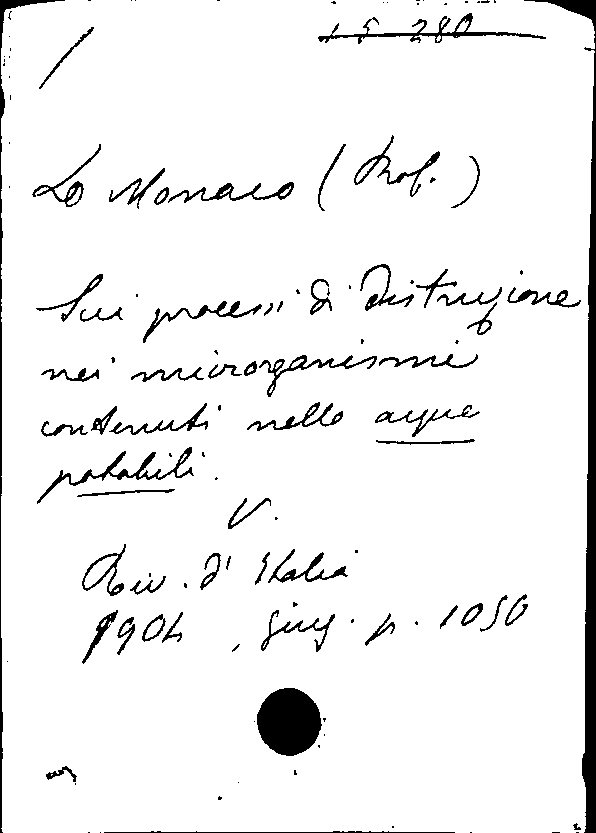 15 280
Lo Monaco (Prof.)
Sui processi di distruzione
nei microrganismi
contenuti nelle acque
potabili.
V.
Riv. d'Italia
1904, giug. p. 1050